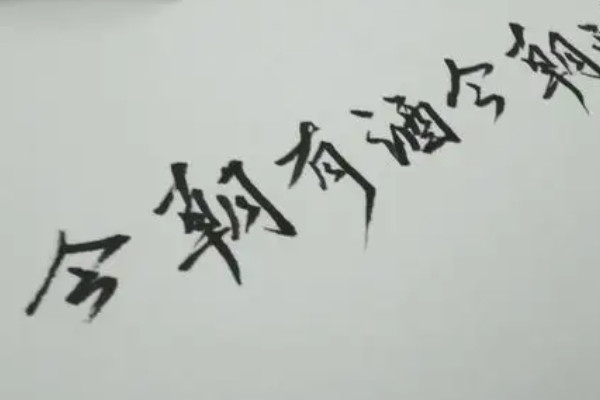 今朝有酒今朝